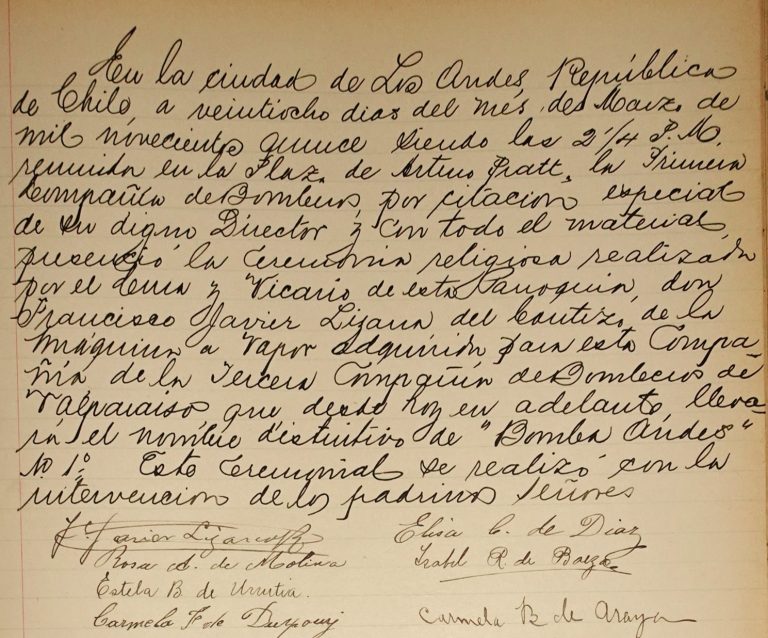 En la ciudad de Los Andes República
de Chile, a veintiocho dias del més de Marzo de
mil novecientos quince siendo las 2 1/4 P.M.
reunida en la Plaza de Arturo Pratt, la Primera
Compañia de Bomberos, por citacion especial
de su digno Director y con todo el material,
presenció la Ceremonia religiosa realizada
por el Cura y Vicario de esta Parroquia, don
Francisco Javier Lizana del bautizo de la
máquina a Vapor adquirida para esta Compa-
ñia de la Tercera Compañia de Bomberos de
Valparaiso que desde hoy en adelante lleva-
rá el nombre distintivo de "Bomba Andes"
No. 1º. Este Ceremonial se realizó con la
intervencion de los padrinos Señores
F. Javier Lizana Elisa C. de Diaz
Rosa A. de Molina Isabel R. de Baeza
Estela B de Urrutia.
Carmela F de Carmela B de Araya